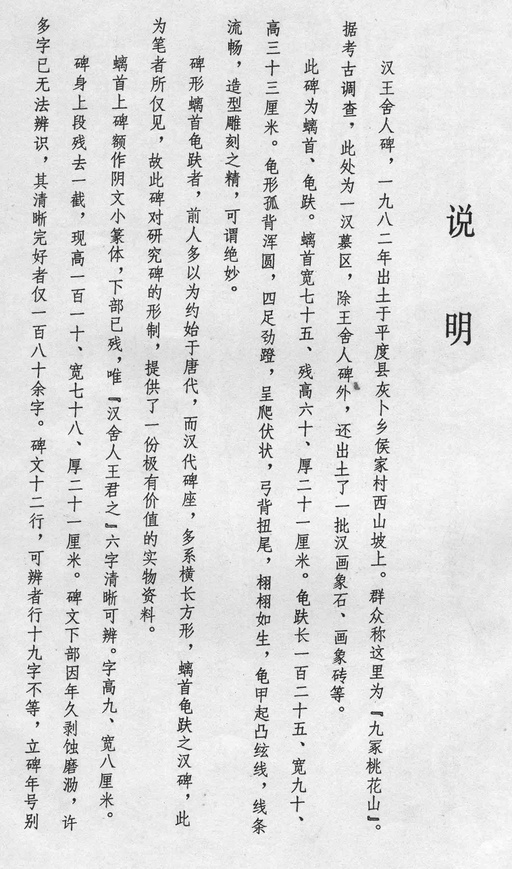 说明
汉王舍人碑，一九八二年出土于平度县灰卜乡侯家村西山坡上。群众称这里为『九冢桃花山』。
据考古调查，此处为一汉墓区，除王舍人碑外，还出土了一批汉画象石、画象砖等。
此碑为螭首、龟趺。螭首宽七十五、残高六十、厚二十一厘米。龟趺长一百二十五、宽九十、
高三十三厘米。龟形孤背浑圆，四足劲蹬，呈爬伏状，弓背扭尾，栩栩如生，龟甲起凸绉线，线条
流畅，造型雕刻之精，可谓绝妙。
碑形螭首龟趺者，前人多以为约始于唐代，而汉代碑座，多系横长方形，螭首龟趺之汉碑，此
为笔者所仅见，故此碑对研究碑的形制，提供了一份极有价值的实物资料。
螭首上碑额作阴文小篆体，下部已残，唯『汉舍人王君之』六字清晰可辨。字高九、宽八厘米。
碑身上段残去一截，现高一百一十、宽七十八、厚二十一厘米。碑文下部因年久剥蚀磨泐，许
多字已无法辨识，其清晰完好者仅一百八十余字。碑文十二行，可辨者行十九字不等，立碑年号别